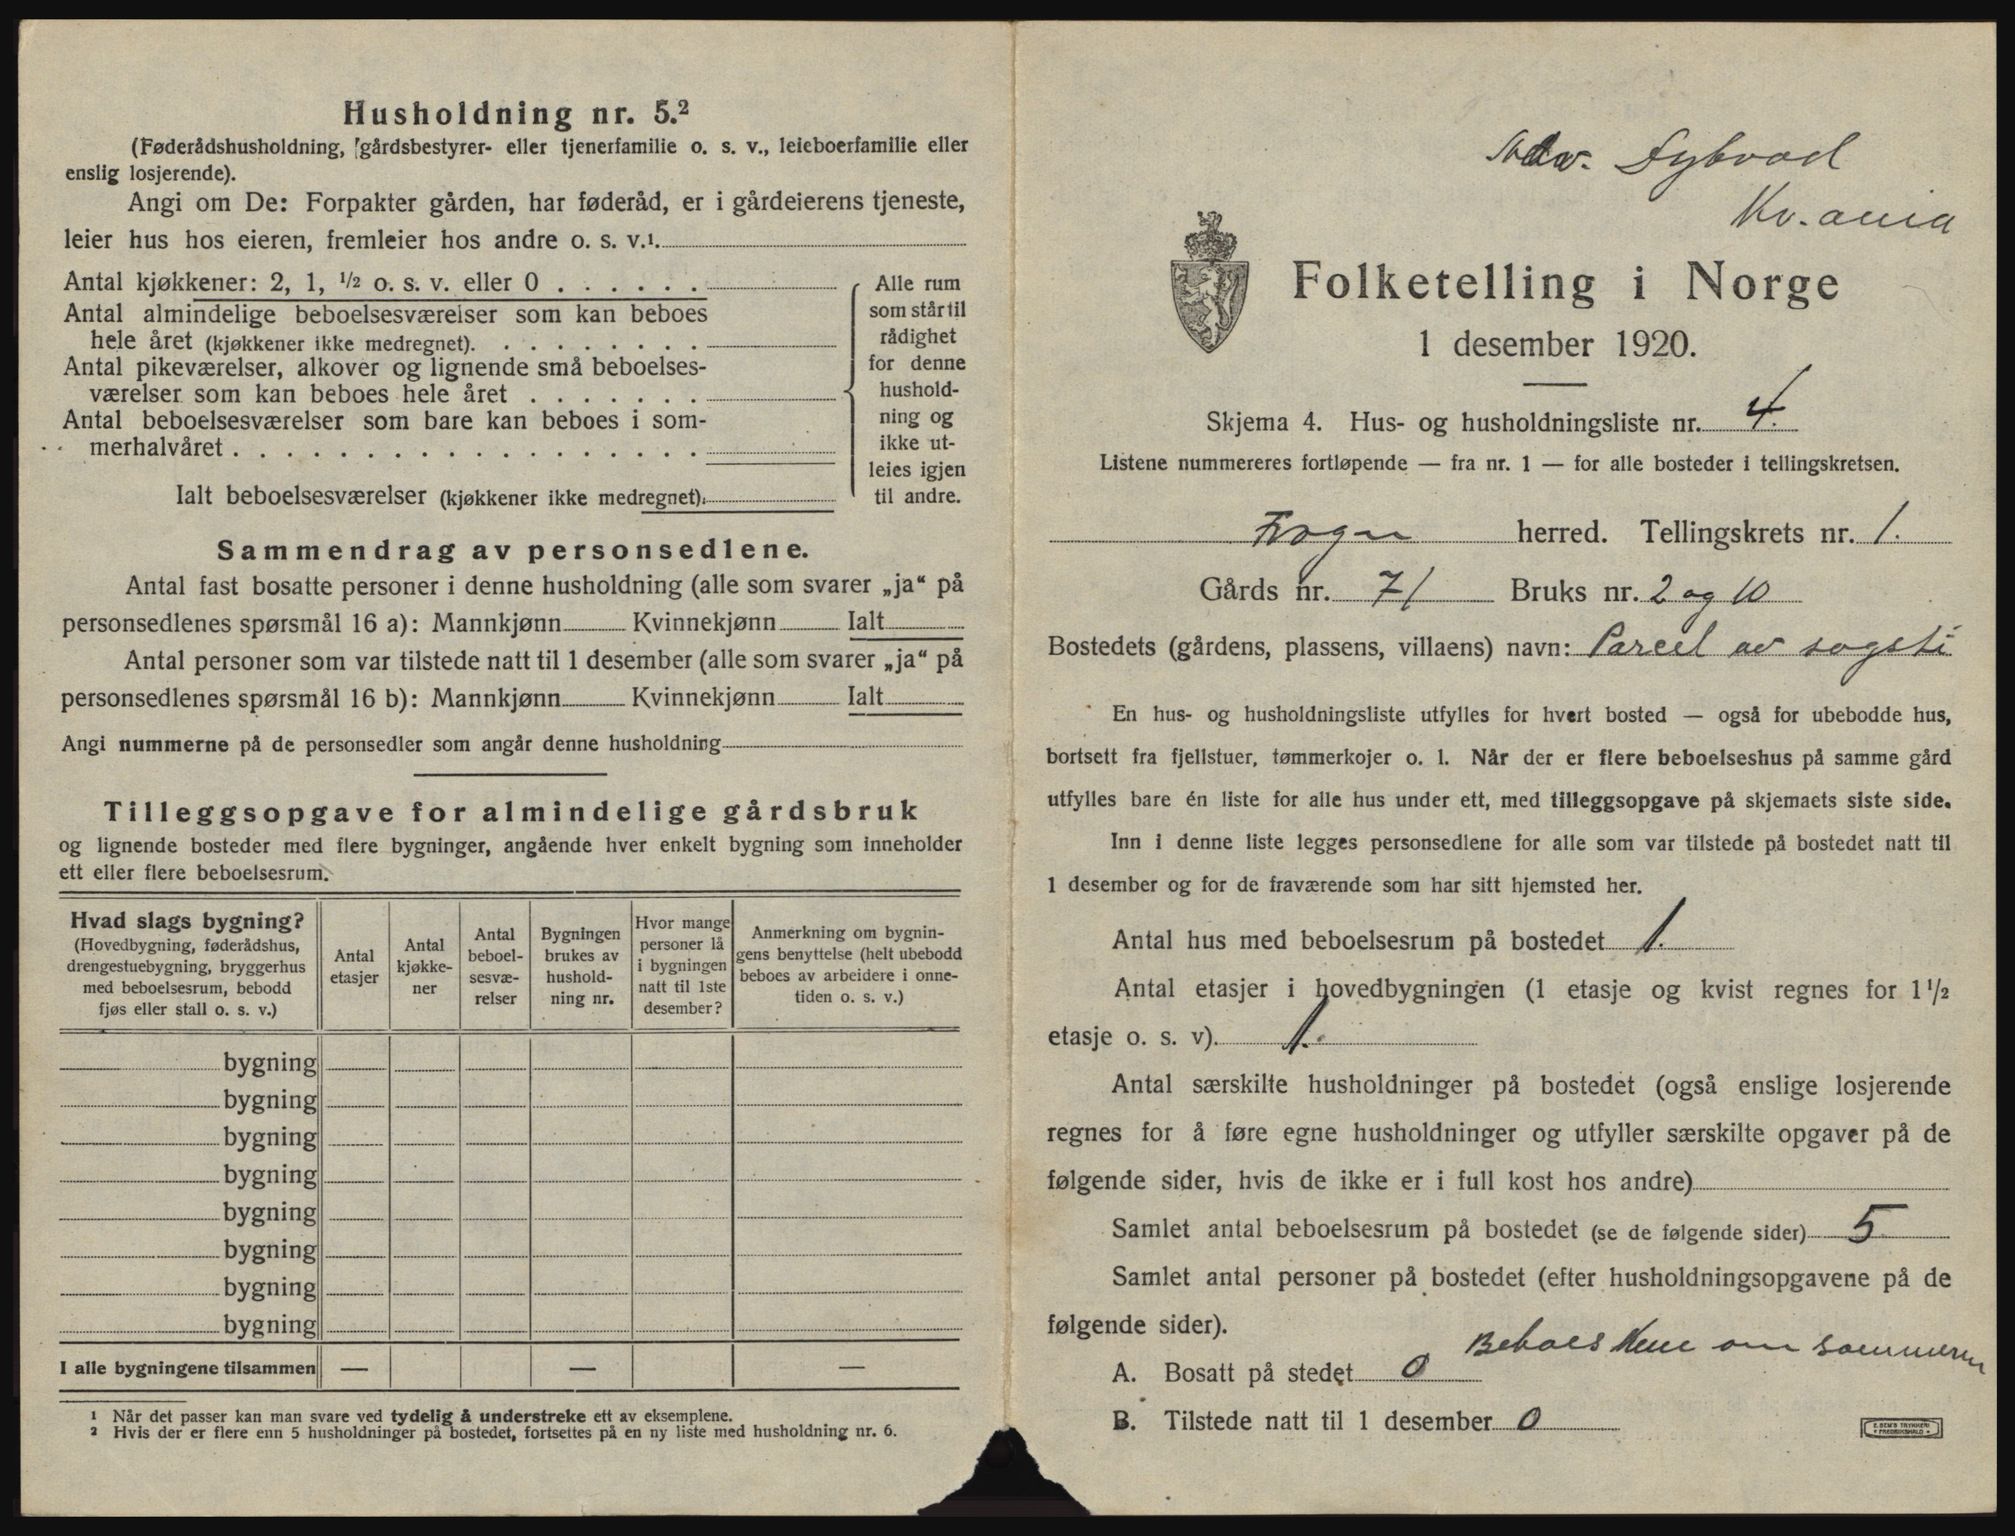 Husholdning nr. 5.²
(Føderådshusholdning, gårdsbestyrer- eller tjenerfamilie o. s. v., leieboerfamilie eller
enslig losjerende).
Angi om De: Forpakter gården, har føderåd, er i gårdeierens tjeneste,
leier hus hos eieren, fremleier hos andre o. s. v.¹.
Antal kjøkkener: 2, 1, ½ o. s. v. eller 0 . . . . . .
Antal almindelige beboelsesværelser som kan beboes
hele året (kjøkkener ikke medregnet). . . . . . . . .
Antal pikeværelser, alkover og lignende små beboelses-
værelser som kan beboes hele året . . . . . . .
Antal beboelsesværelser som bare kan beboes i som-
merhalvåret . . . . . . . . . . . . . . . . . .
Ialt beboelsesværelser (kjøkkener ikke medregnet).
Alle rum
som står til
rådighet
for denne
hushold-
ning og
ikke ut-
leies igjen
til andre.
Sammendrag av personsedlene.
Antal fast bosatte personer i denne husholdning (alle som svarer „ja“ på
personsedlenes spørsmål 16 a): Mannkjønn Kvinnekjønn Ialt
Antal personer som var tilstede natt til 1 desember (alle som svarer „ja“ på
personsedlenes spørsmål 16 b): Mannkjønn Kvinnekjønn Ialt
Angi nummerne på de personsedler som angår denne husholdning
Tilleggsopgave for almindelige gårdsbruk
og lignende bosteder med flere bygninger, angående hver enkelt bygning som inneholder
ett eller flere beboelsesrum.
Hvad slags bygning?
(Hovedbygning, føderådshus,
drengestuebygning, bryggerhus
med beboelsesrum, bebodd
fjøs eller stall o. s. v.)
Antal
etasjer
Antal
kjøkke-
ner
Antal
beboel-
sesvæ-
relser
Bygningen
brukes av
hushold-
ning nr.
Hvor mange
personer lå
i bygningen
natt til 1ste
desember?
Anmerkning om bygnin-
gens benyttelse (helt ubebodd
beboes av arbeidere i onne-
tiden o. s. v.)
bygning
bygning
bygning
bygning
bygning
bygning
bygning
bygning
I alle bygningene tilsammen — — —
¹ Når det passer kan man svare ved tydelig å understreke ett av eksemplene.
² Hvis der er flere enn 5 husholdninger på bostedet, fortsettes på en ny liste med husholdning nr. 6.
Dybvad
Kr.ania
Folketelling i Norge
1 desember 1920.
Skjema 4. Hus- og husholdningsliste nr. 4.
Listene nummereres fortløpende — fra nr. 1 — for alle bosteder i tellingskretsen.
Frogn herred. Tellingskrets nr. 1.
Gårds nr. 71 Bruks nr. 2 og 10
Bostedets (gårdens, plassens, villaens) navn: Parcel av sogsti
En hus- og husholdningsliste utfylles for hvert bosted — også for ubebodde hus,
bortsett fra fjellstuer, tømmerkojer o. l. Når der er flere beboelseshus på samme gård
utfylles bare én liste for alle hus under ett, med tilleggsopgave på skjemaets siste side.
Inn i denne liste legges personsedlene for alle som var tilstede på bostedet natt til
1 desember og for de fraværende som har sitt hjemsted her.
Antal hus med beboelsesrum på bostedet 1.
Antal etasjer i hovedbygningen (1 etasje og kvist regnes for 1½
etasje o. s. v). 1.
Antal særskilte husholdninger på bostedet (også enslige losjerende
regnes for å føre egne husholdninger og utfyller særskilte opgaver på de
følgende sider, hvis de ikke er i full kost hos andre)
Samlet antal beboelsesrum på bostedet (se de følgende sider) 5
Samlet antal personer på bostedet (efter husholdningsopgavene på de
følgende sider).
Beboes kun om sommeren
A. Bosatt på stedet 0
B. Tilstede natt til 1 desember 0
E. SEM'S TRYKKERI
FREDRIKSHALD